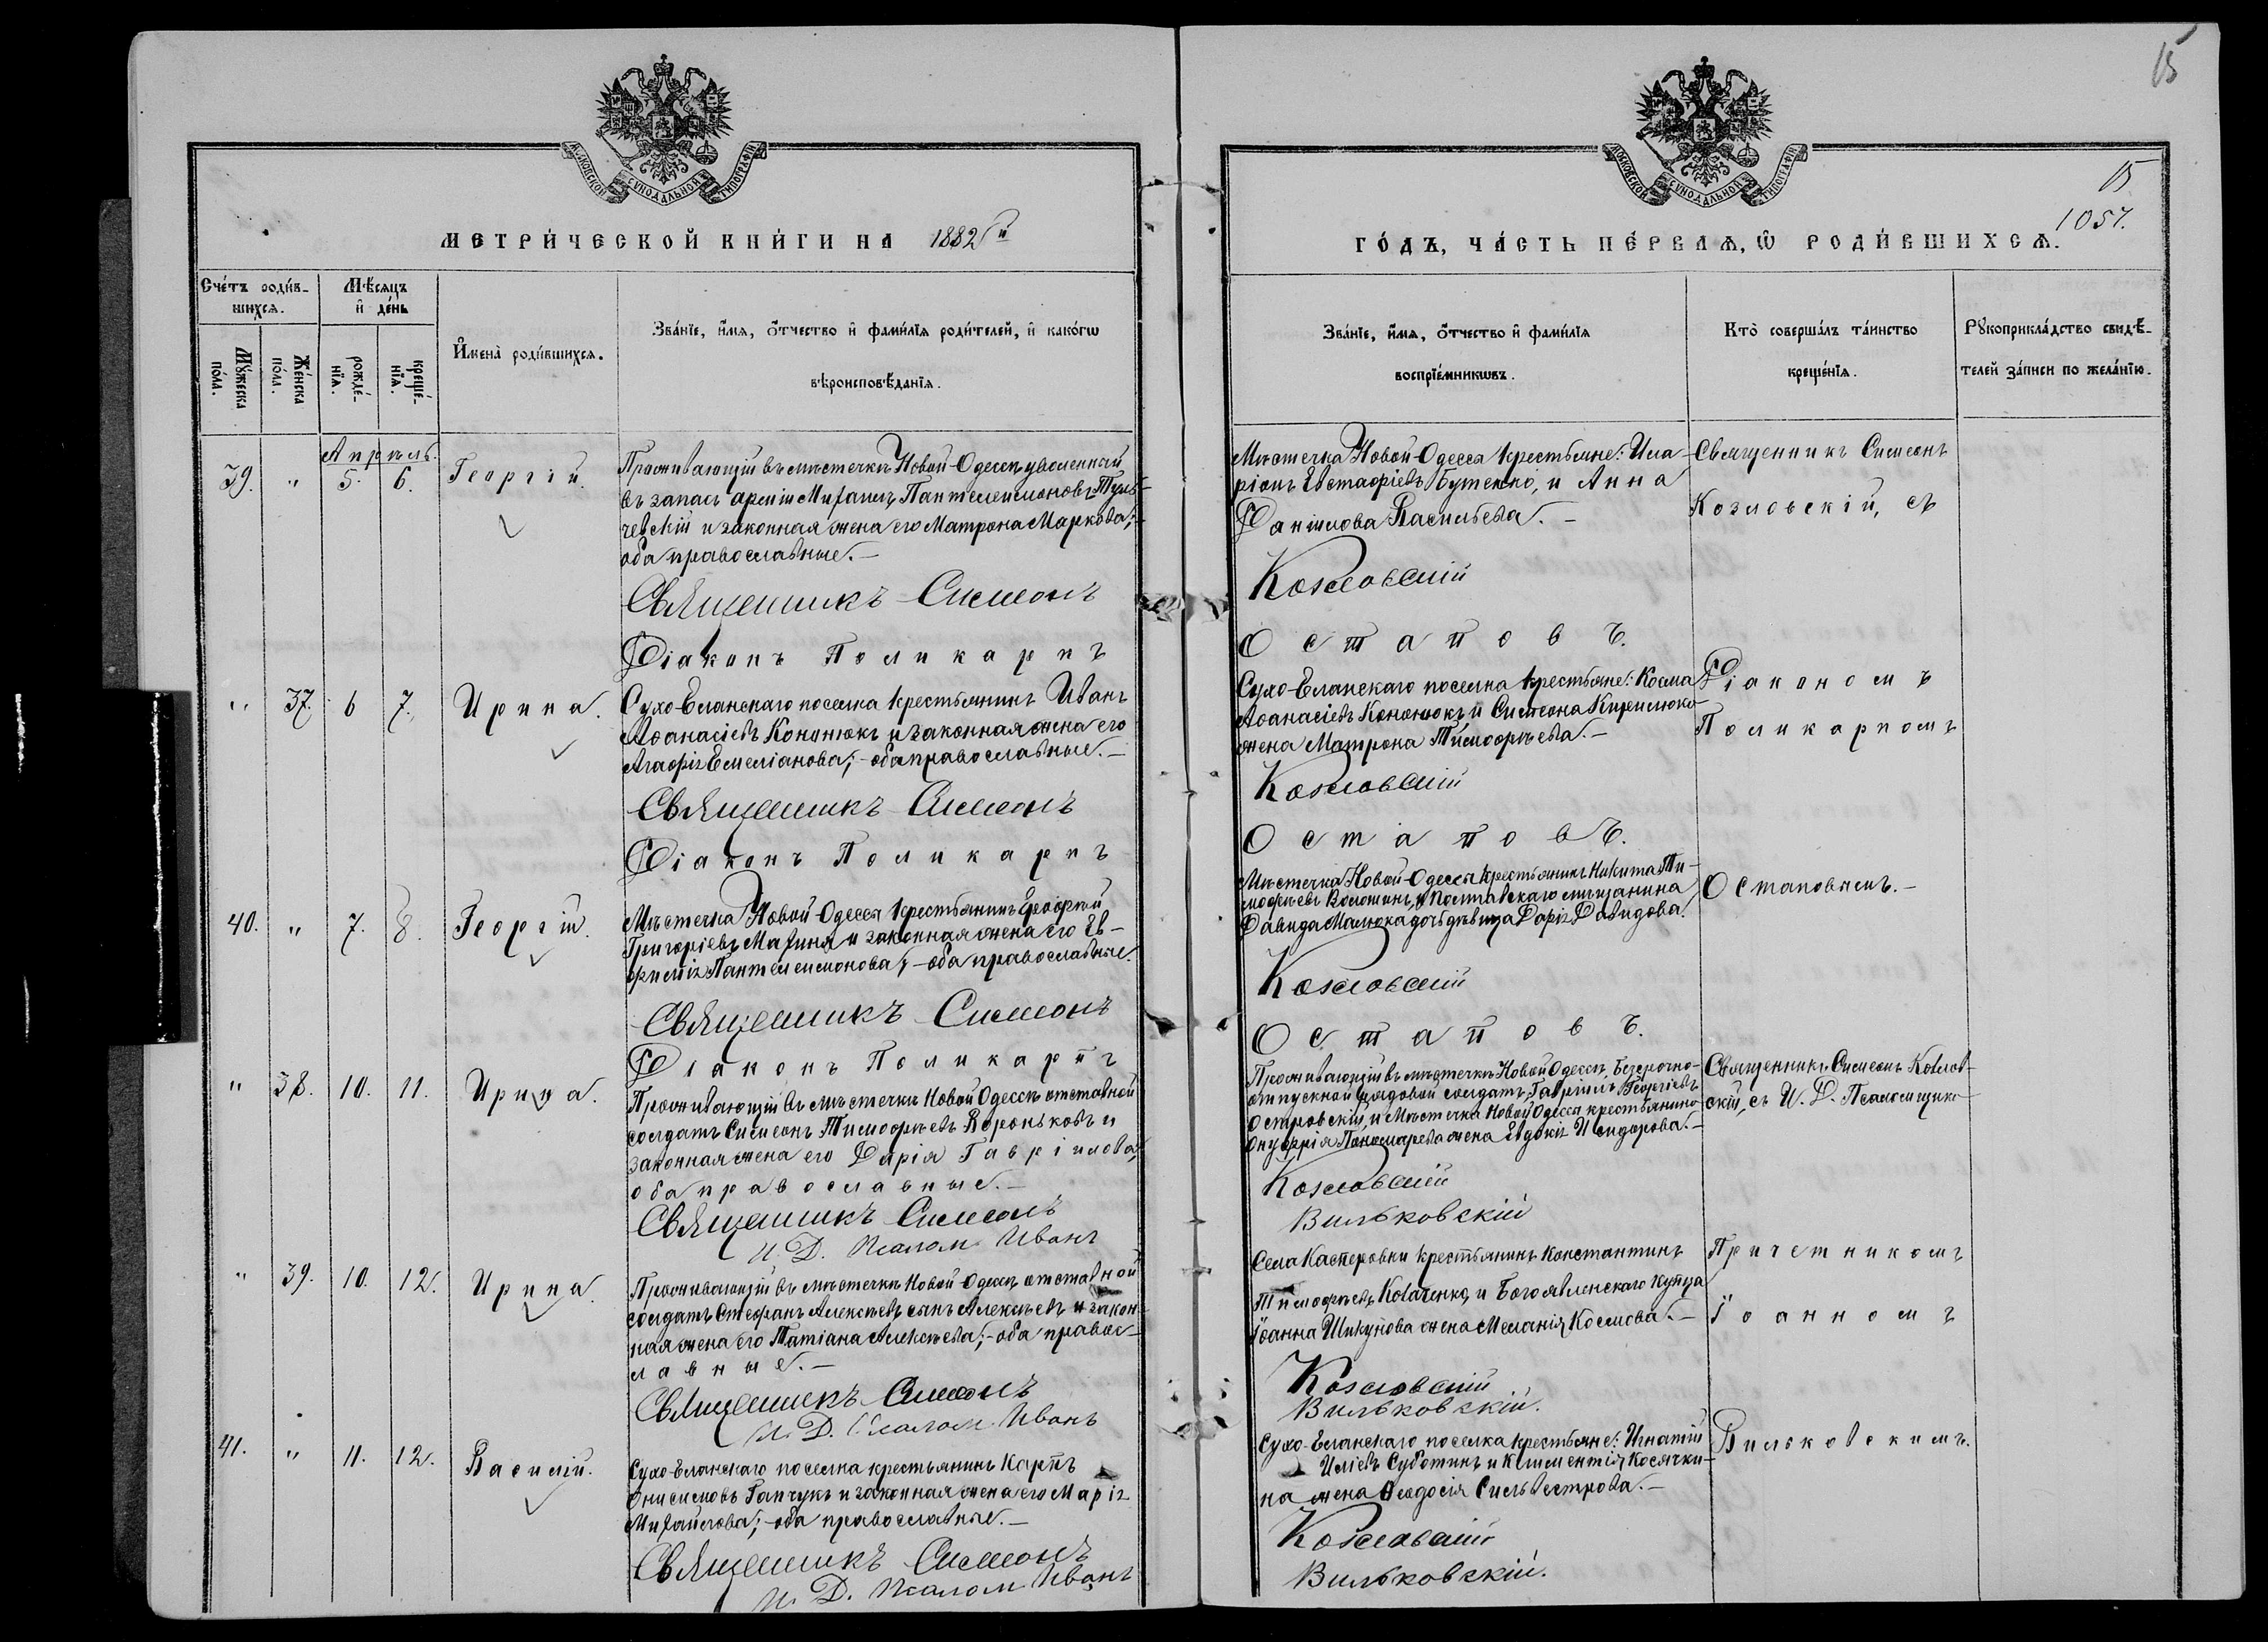 15
МОСКОВСКОЙ СѴНОДАЛЬНОЙ ТИПОГРАФІИ
МОСКОВСКОЙ СѴНОДАЛЬНОЙ ТИПОГРАФІИ
15
1057.
МЕТРИ́ЧЕСКОЙ КНИ́ГИ НА 1882й
ГО́ДЪ, ЧА́СТЬ ПЕ́РВАѦ, Ѽ РОДИ́ВШИХСѦ.
Сче́тъ роди́в-
шихсѧ.
Мѣ́сѧцъ
и҆ де́нь
Мꙋжеска
по́ла.
Же́нска
по́ла.
рожде́-
нїѧ.
креще́-
нїѧ.
И҆мена̀ роди́вшихсѧ.
Зва́нїе, и҆́мѧ, ѻ҆́тчество и҆ фами́лїѧ роди́телей, и҆ како́гѡ
вѣроисповѣ́данїѧ.
Зва́нїе, и҆́мѧ, ѻ҆́тчество и҆ фами́лїѧ
воспрїе́мникѡвъ.
Кто̀ соверша́лъ та́инство
креще́нїѧ.
Рꙋкоприкла́дство свидѣ́-
телей за́писи по жела́нїю.
Апрѣль.
39. " 5. 6. Георгій.
Проживающій въ мѣстечкѣ Новой-Одессѣ уволенный
въ запасъ арміи Михаилъ Пантелеимоновъ Туль-
чевскій и законная жена его Матрона Маркова;-
оба православные.-
Священникъ Симеонъ
Діаконъ Поликарпъ
Мѣстечка Новой-Одесса крестьяне: Ила-
ріонъ Евстафіевъ Бутенко, и Анна
Даніилова Васильева.-
Козловскій
Остаповъ.
Священникъ Симеонъ
Козловскій, съ
" 37. 6 7. Ирина.
Сухо-Еланскаго поселка крестьянинъ Иванъ
Аѳанасіевъ Кононюкъ и законная жена его
Агафія Емеліанова;-оба православные.-
Священникъ Симеонъ
Діаконъ Поликарпъ
Сухо-Еланскаго поселка крестьяне: Косма
Аѳанасіевъ Кононюкъ, и Симеона Кирилюка
жена Матрона Тимофѣева.-
Козловскій
Остаповъ.
Діакономъ
Поликарпомъ
40. " 7. 8. Георгій.
Мѣстечка Новой-Одесса крестьянинъ Георгій
Григоріевъ Махиня и законная жена его Ев-
фимія Пантелеимонова;-оба православные.
Священникъ Симеонъ
Діаконъ Поликарпъ
Мѣстечка Новой-Одесса крестьянинъ Никита Ти-
мофѣевъ Волошинъ, и Полтавскаго мѣщанина
Давида Малюка дочь дѣвица Дарія Давидова.
Козловскій
Остаповъ.
Остаповымъ.-
" 38. 10. 11. Ирина.
Проживающій въ мѣстечкѣ Новой Одессѣ отставной
солдатъ Симеонъ Тимофѣевъ Вороньковъ и
законная жена его Дарія Гавріилова;
оба православные.-
Священникъ Симеонъ
И. Д. Псалом. Иванъ
Проживающій въ мѣстечкѣ Новой Одессѣ, Безсрочно-
отпускной рядовой солдатъ, Гавріилъ Георгіевъ
Островскій, и Мѣстечка Новой Одесса крестьянина
Онуфрія Пономарева жена Евдокія Исидорова.-
Козловскій
Вильковскій
Священникъ Симеонъ Козлов-
скій, съ И. Д. Псаломщика
" 39. 10. 12. Ирина.
Проживающій въ мѣстечкѣ Новой-Одессѣ, отставной
солдатъ Стефанъ Алексѣевъ сынъ Алексѣевъ и закон-
ная жена его Татіана Алексѣева;-оба правос-
лавные.-
Священникъ Симеонъ
И. Д. Псалом. Иванъ
Села Касперовки крестьянинъ Константинъ
Тимофѣевъ Коваленко, и Богоявленскаго купца
Іоанна Шикунова жена Меланія Космова.-
Козловскій
Вильковскій.
Причетникомъ
Іоанномъ
41. " 11. 12. Василій.
Сухо-Еланскаго поселка крестьянинъ Карпъ
Онисимовъ Гапчукъ и законная жена его Марія
Михайлова;-оба православные.-
Священникъ Симеонъ
И. Д. Псалом. Иванъ
Сухо-Еланскаго поселка крестьяне: Игнатій
Иліевъ Суботинъ и Климентія Косячки-
на жена Ѳеодосія Сильвестрова.-
Козловскій
Вильковскій.
Вильковскимъ.